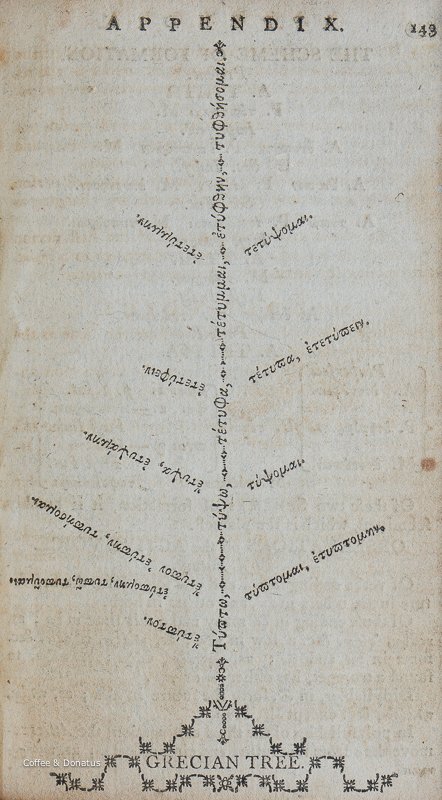 APPENDIX.
149
Τύπτω, τύψω, τέτυφα, τέτυμμαι, ἐτύφθην, τυφθήσομαι.
ἐτετύμμην.
τετύψομαι.
ἐτετύφειν.
τέτυπα, ἐτετύπειν.
ἔτυψα, ἐτυψάμην.
τύψομαι.
ἔτυπον ἐτύπην, τυπήσομαι.
ἐτύπομην, τυπῶ, τυποῦμαι.
τύπτομαι, ἐτυπτομην.
ἔτυπτον.
GRECIAN TREE.
Coffee & Donatus